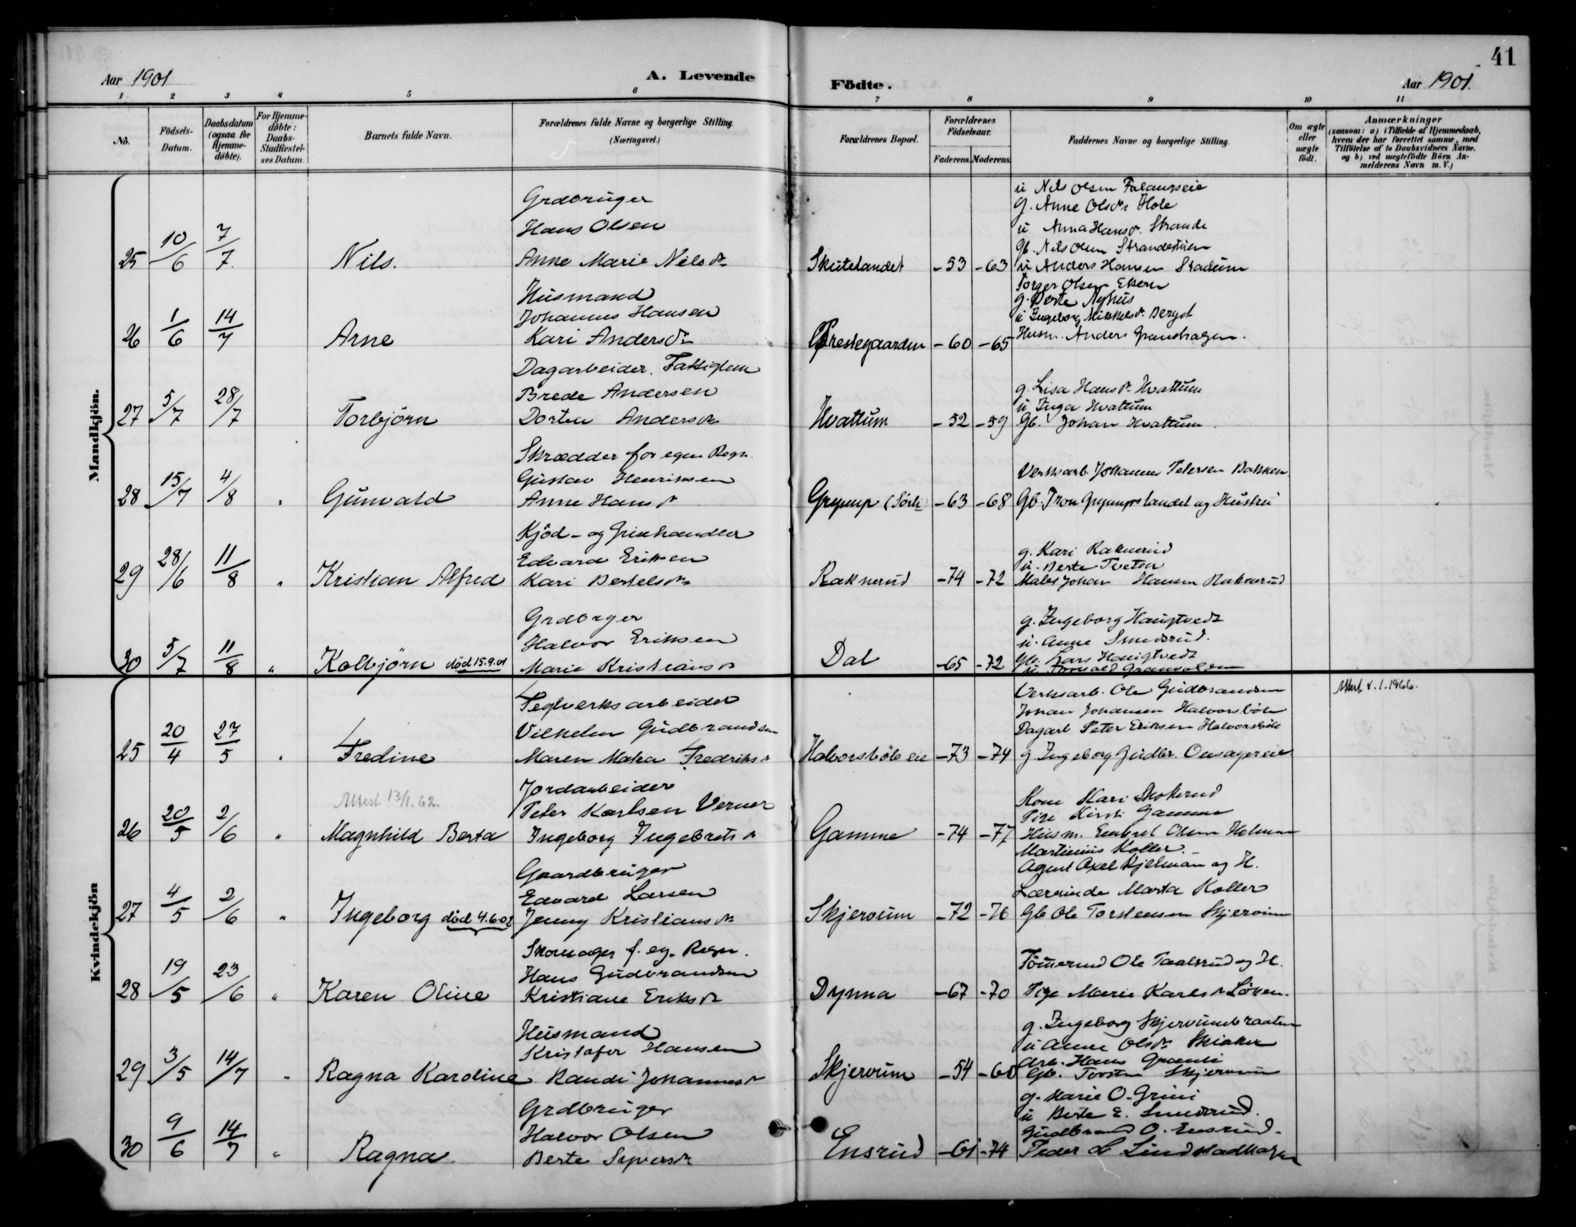 41
Aar 1901
A. Levende
Födte.
Aar 1901.
1 2 3 4 5 6 7 8 9 10 11
No.
Födsels-Datum.
Daabsdatum (ogsaa for Hjemme-døbte).
For Hjemme-døbte: Daabs-Stadfæstel-ses Datum.
Barnets fulde Navn.
Forældrenes fulde Navne og borgerlige Stilling. (Næringsvei.)
Forældrenes Bopæl.
Forældrenes Födselsaar.
Faderens. Moderens.
Faddernes Navne og borgerlige Stilling.
Om ægte eller uægte født.
Anmærkninger
(saasom: a) i Tilfælde af Hjemmedaab, hvem der har forrettet samme, med Tilföielse af to Daabsvidners Navne. og b) ved uægtefödte Börn An-melderens Navn m. V.)
Mandkjön.
Grdbruger
Hans Olsen
25 10/6 7/7. Nils. Anne Marie Nilsdr. Skutelandet -53 -63
u Nils Olsen
g. Anne Olsdr. Hole
u Anna Hansdr. Strande
gb. Nils Olsen
u Anders Hansen Stadum
Husmand
Johannes Hansen
26 1/6 14/7 Arne Kari Andersdr. Prestegaarden -60 -65
Torger Olsen
g. Berte Nyhus
u Ingeborg
Husm. Anders Granshagen.
Dagarbeider.
Brede Andersen
27 5/7 28/7 Torbjörn Dorthea Andersdr. Hvattum -52 -59
g. Lisa Hansdr. Hvattum
u Inga Hvattum
Gb. Johan Hvattum.
Skrædder for egen Regn.
Gustav Henriksen
28 15/7 4/8 " Gunvald Anne Hansdr. Grymyr -63 -68
Verksarb. Johannes Petersen Bakken
Gb. landet og Hustru
Kjöd- og
Edvard Eriksen
29 28/6 11/8 " Kristian Alfred Kari Bertelsdr. Raknerud -74 -72
g. Kari Raknerud
u. Berte Tveten
Maler Johan Hansen Raknerud
Grdbrger
Halvor Eriksen
30 5/7 11/8 " Kolbjörn död 15.9.01 Marie Kristiansdr. Dal -65 -72
g. Ingeborg Haugtvedt
u. Anne Smedsrud.
Gb. Lars Haugtvedt
Kvindekjön
Teglverksarbeider
Vilhelm Gudbrandsen
25 20/4 27/5 " Fredine Maren Matea Fredriksdr. Halvorsböleeie -73 -74
Verksarb. Ole Gudbrandsen
Johan Johansen Halvorsböle
Dagarb. Peter Eriksen Halvorsböle
g. Ingeborg Gudbr.
Attest 8.1.1966.
Attest 13/1.62.
Jordarbeider
Peter Karlsen Verner
26 20/5 2/6 " Magnhild Berta Ingeborg Ingebretsdr. Gamme -74 -77
Kone Kari
Pige Kirsti Gamme
Husm. Engbret Olsen
Martinius Koller.
Gaardbruger
Edvard Larsen
27 4/5 2/6 " Ingeborg död 4.6.02 Jenny Kristiansdr. Skjervum -72 -76
Agent Axel Kjelman og H.
Lærerinde Marta Koller
Gb Ole Torstensen Skjervum
Skomager f. eg. Regn.
Hans Gudbrandsen
28 19/5 23/6 " Karen Oline Kristiane Eriksdr. Dynna -67 -70
Ole Taalsrud og H.
Pige Marie Karlsdr. Löken.
Husmand
Kristofer Hansen
29 3/5 14/7 " Ragna Karoline Randi Johannesdr. Skjervum -54 -60
g. Ingeborg Skjervumbraaten
u Anne Olsdr.
Arb. Hans
Gb. Torsten Skjervum
Grdbruger
Halvor Olsen
30 9/6 14/7 " Ragna Berte Syversdr. Ensrud -61 -74
g. Marie O. Grini
u Berte E. Smedsrud.
Gudbrand O. Ensrud.
Peder L. Lindstadhagen